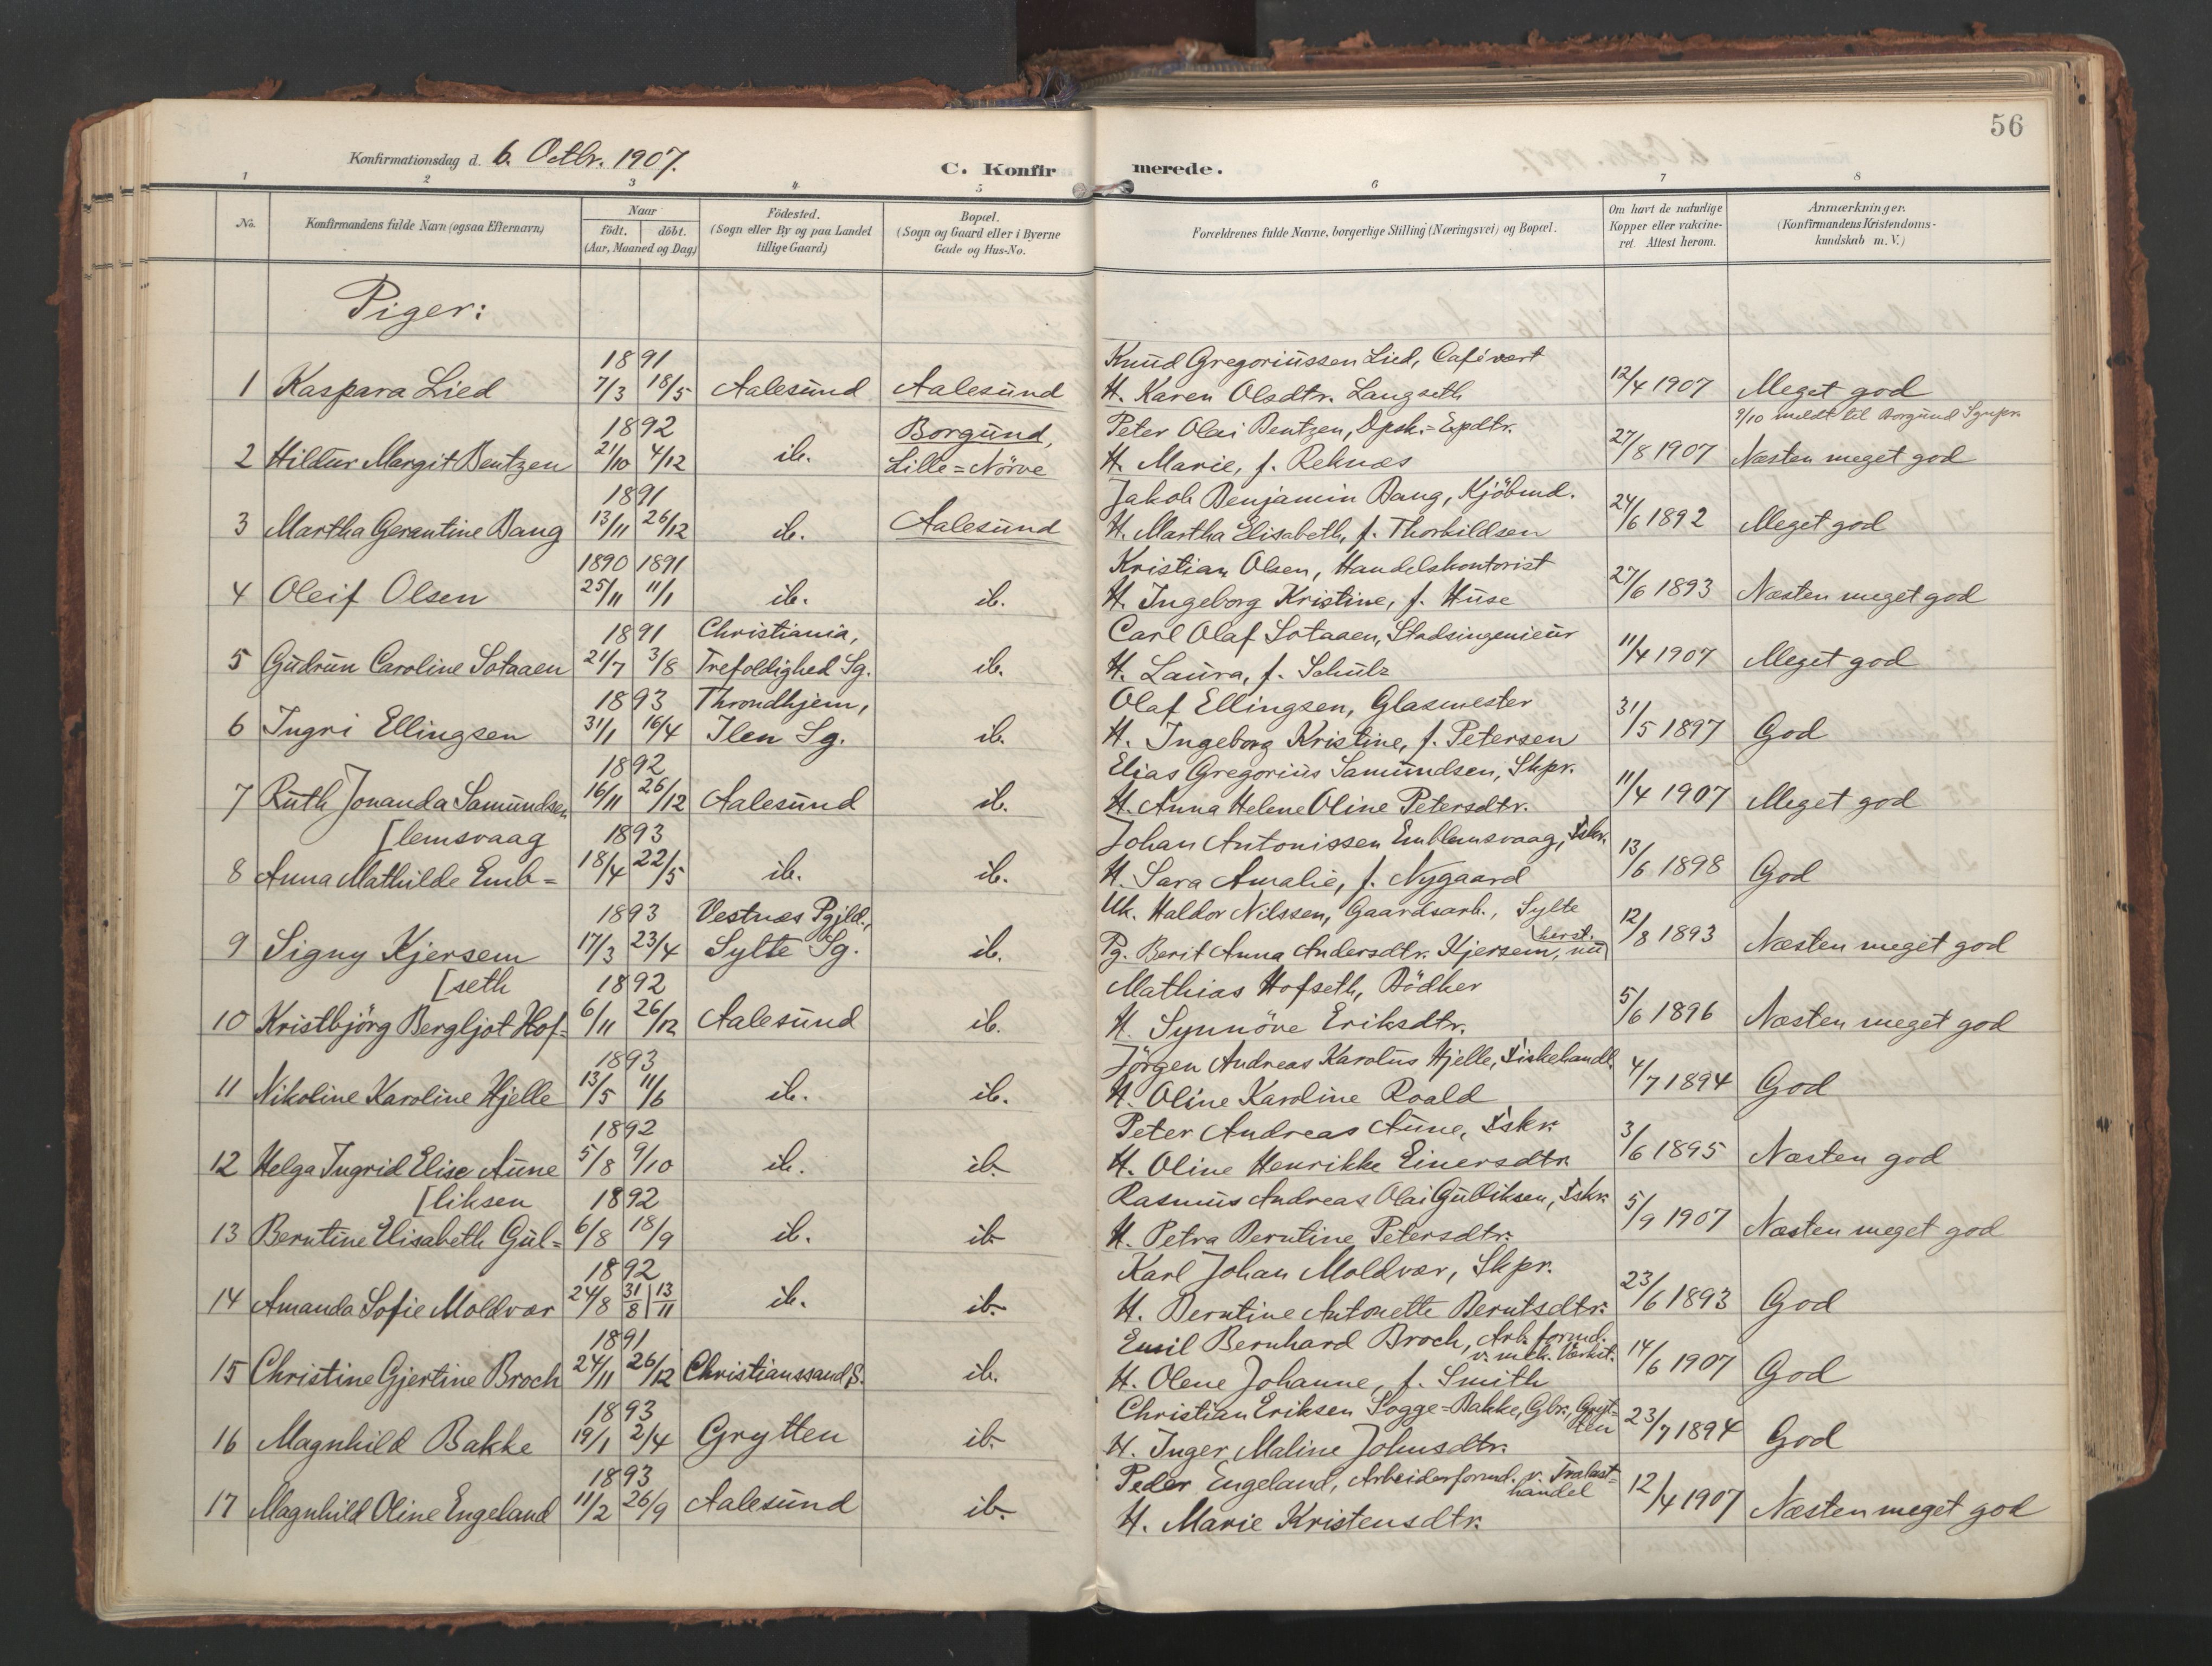 56
Konfirmationsdag d. 6. Octbr. 1907.
C. Konfirmerede.
1 2 3 4 5 6 7 8
No.
Konfirmandens fulde Navn (ogsaa Efternavn)
Naar
födt. döbt.
(Aar, Maaned og Dag)
Födested.
(Sogn eller By og paa Landet
tillige Gaard)
Bopæl.
(Sogn og Gaard eller i Byerne
Gade og Hus-No.
Forældrenes fulde Navne, borgerlige Stilling (Næringsvei) og Bopæl.
Om havt de naturlige
Kopper eller vakcine-
ret. Attest herom.
Anmærkninger.
(Konfirmandens Kristendoms-
kundskab m. V.)
Piger:
1891 Knud Gregoriussen Lied, Cafévært
1 Kaspara Lied 7/3 18/5 Aalesund Aalesund H. Karen Olsdtr. Langseth 12/4 1907 Meget god
9/10 meldt til Borgund Sgnpr.
1892 Borgund, Peter Olai Bentzen, Dpsk.=Expdtr.
2 Hildur Margit Bentzen 21/10 4/12 ib. Lille=Nörve H. Marie, f. Reknæs 27/8 1907 Næsten meget god
1891 Jakob Benjamin Bang, Kjöbmd.
3 Martha Gerantine Bang 13/11 26/12 ib. Aalesund H. Martha Elisabeth, f. Thorkildsen 24/6 1892 Meget god
1890 1891 Kristian Olsen, Handelskontorist
4 Oleif Olsen 25/11 11/1 ib. ib. H. Ingeborg Kristine, f. Huse 27/6 1893 Næsten meget god
1891 Christiania, Carl Olaf Sotaaen, Stadsingeniør
5 Gudrun Caroline Sotaaen 21/7 3/8 Trefoldighed Sg. ib. H. Laura, f. Schulz 11/4 1907 Meget god
1893 Throndhjem, Olaf Ellingsen, Glasmester
6 Ingri Ellingsen 31/1 16/4 Ilen Sg. ib. H. Ingeborg Kristine, f. Petersen 31/5 1897 God
1892 Elias Gregorius Samundsen, Skpr.
7 Ruth Jonanda Samundsen 16/11 26/12 Aalesund ib. H. Anna Helene Oline Petersdtr. 11/4 1907 Meget god
[lemsvaag 1893 Johan Antonissen Emblemsvaag, Fskr.
8 Anna Mathilde Emb= 18/4 22/5 ib. ib. H. Sara Amalie, f. Nygaard 13/6 1898 God
1893 Vestnæs Pgjld., Uk. Haldor Nilssen, Gaardsarb., Sylte
9 Signy Kjersem 17/3 23/4 Sylte Sg. ib. Pg. Berit Anna Andersdtr. Kjersem, nu [herst. 12/8 1893 Næsten meget god
[seth 1892 Mathias Hofseth, Bödker
10 Kristbjörg Bergljot Hof= 6/11 26/12 Aalesund ib. H. Synnöve Eriksdtr. 5/6 1896 Næsten meget god
1893 Jörgen Andreas Karolus Hjelle, Fiskehandl.
11 Nikoline Karoline Hjelle 13/5 11/6 ib. ib. H. Oline Karoline Roald 4/7 1894 God
1892 Peter Andreas Aune, Fskr.
12 Helga Ingrid Elise Aune 5/8 9/10 ib. ib. H. Oline Henrikke Einersdtr. 3/6 1895 Næsten god
[liksen 1892 Rasmus Andreas Olai Gulliksen, Fskr.
13 Berntine Elisabeth Gul= 6/8 18/9 ib. ib. H. Petra Berntine Petersdtr. 5/9 1907 Næsten meget god
1892 Karl Johan Moldvær, Skpr.
14 Amanda Sofie Moldvær 24/8 31/8 | 13/11 ib. ib. H. Berntine Antonette Berntsdtr. 23/6 1893 God
1891 Emil Bernhard Broch, Arb. formd. v. mek. Værkst.
15 Christine Gjertine Broch 24/11 26/12 Christianssand S. ib. H. Olene Johanne, f. Smith 14/6 1907 God
1893 Christian Eriksen Sogge=Bakke, Gbr., Gryt=ten
16 Magnhild Bakke 19/1 2/4 Grytten ib. H. Inger Maline Johnsdtr. 23/7 1894 God
1893 Peder Engeland, Arbeiderformd. v. Trælasthandel
17 Magnhild Oline Engeland 11/2 26/9 Aalesund ib. H. Marie Kristensdtr. 12/4 1907 Næsten meget god